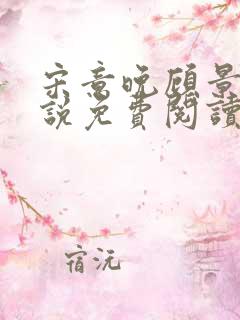 宋意晚顾景
說免費閱讀
宿沅